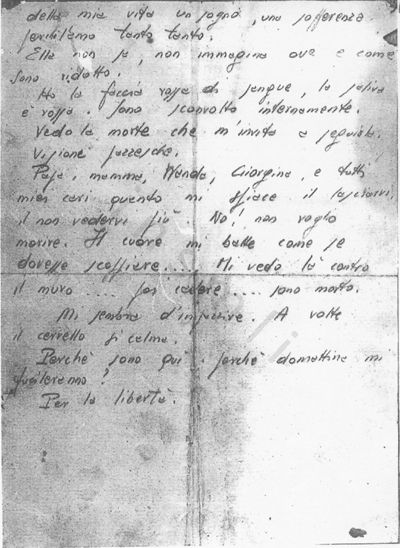 della mia vita un sogno, una sofferenza.
perdiamo tanto tanto.
Ella non sa, non immagina ove e come
sono ridotto.
Ho la faccia rossa di sangue, la saliva
è rossa. Sono sconvolto internamente.
Vedo la morte che m'invita a seguirla.
Visioni pazzesche.
Papà, mamma, Wanda, Giorgina, e tutti
miei cari quanto mi spiace il lasciarvi,
il non vedervi più. No! non voglio
morire. Il cuore mi batte come se
dovesse scoppiare.... Mi vedo là contro
il muro ... poi cadere .... sono morto.
Mi sembra d'impazzire. A volte
il cervello si calma.
Perchè sono qui, perchè domattina mi
fucileranno?
Per la libertà.